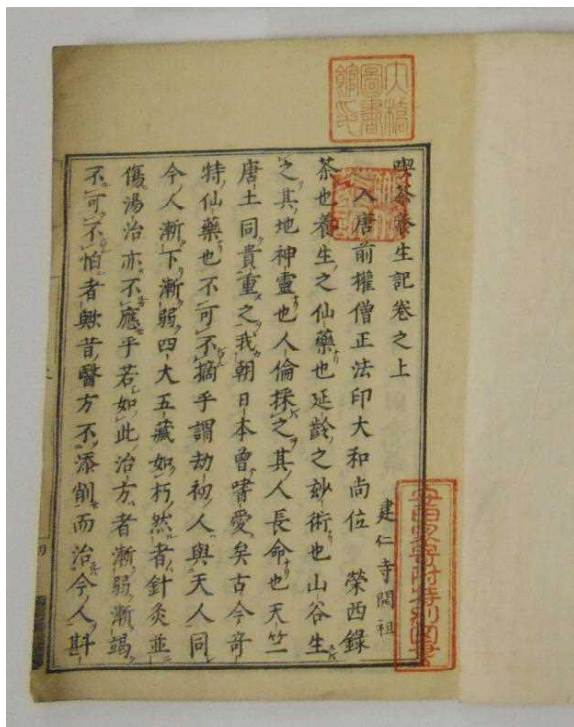 大橋
圖書
館印
喫茶養生記卷之上
建仁寺開祖
入唐前權僧正法印大和尚位 榮西錄
茶也養生之仙藥也延齡之妙術也山谷生
之其地神靈也人倫採之其人長命也天竺
唐土同貴重之我朝日本曾嗜愛矣古今奇
特仙藥也不可不摘乎謂劫初人與天人同
今人漸下漸弱四大五藏如朽然者針灸並
傷湯治亦不應乎若如此治方者漸弱漸竭
不可不怕者歟昔醫方不添削而治今人斟